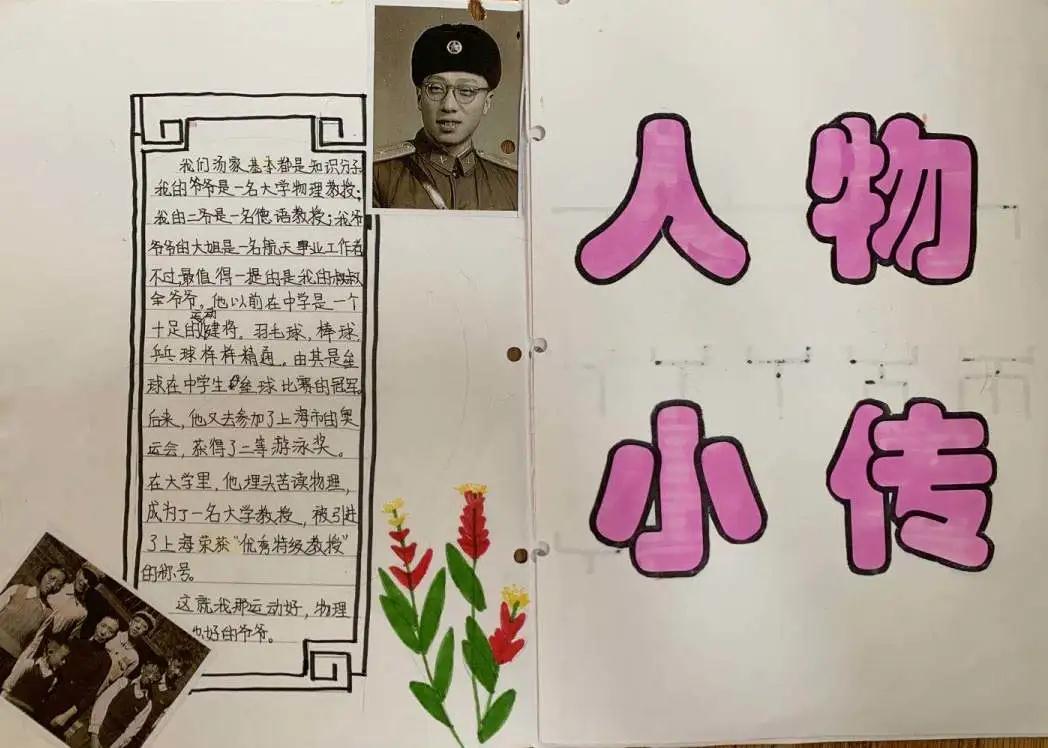 我们汤家基本都是知识分子
我的爷爷是一名大学物理教授；
我的二爷是一名德语教授；我爷
爷爷的大姐是一名航天事业工作者
不过最值得一提的是我的叔叔
全爷爷，他以前在中学是一个
十足的运动健将。羽毛球，棒球，
乒乓球样样精通。由其是垒
球在中学生垒球比赛的冠军。
后来，他又去参加了上海市的奥
运会，获得了二等游泳奖。
在大学里，他埋头苦读物理，
成为了一名大学教授，被引进
了上海荣获“优秀特级教授”
的称号。
这就我那运动好，物理
也好的爷爷。
人物
小传